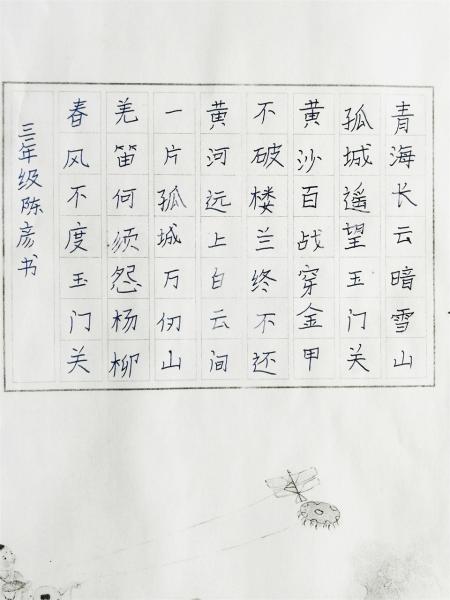 青海长云暗雪山
孤城遥望玉门关
黄沙百战穿金甲
不破楼兰终不还
黄河远上白云间
一片孤城万仞山
羌笛何须怨杨柳
春风不度玉门关
三年级陈彦书